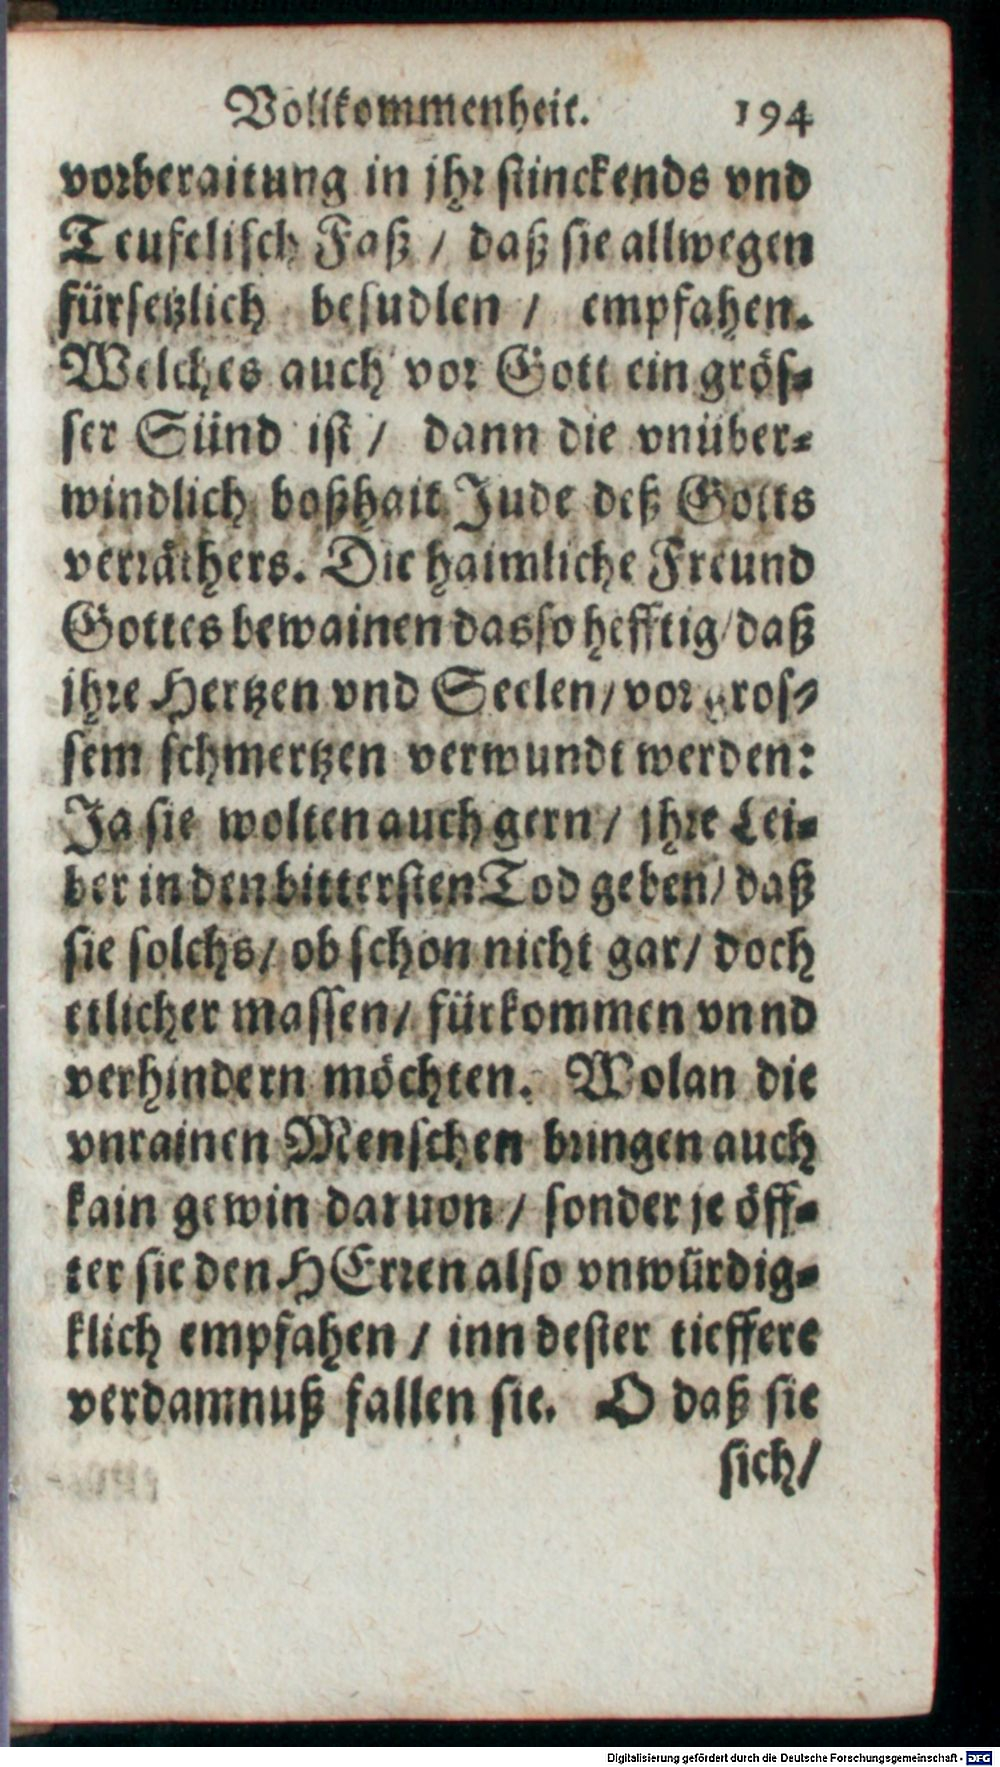 Vollkommenheit. 194
vorberaitung in jhr stinckends vnd
Teufelisch Faß / daß sie allwegen
fürsetzlich besudlen / empfahen.
Welches auch vor Gott ein grös⸗
ser Sünd ist / dann die vnüber⸗
windlich boßhait Jude deß Gotts
verräthers. Die haimliche Freund
Gottes bewainen das so hefftig / daß
jhre Hertzen vnd Seelen / vor gros⸗
sem schmertzen verwundt werden:
Ja sie wolten auch gern / jhre Lei⸗
ber in den bittersten Tod geben / daß
sie solchs / ob schon nicht gar / doch
etlicher massen / fürkommen vnnd
verhindern möchten. Wolan die
vnrainen Menschen bringen auch
kain gewin daruon / sonder je öff⸗
ter sie den HErren also vnwürdig⸗
klich empfahen / inn dester tieffere
verdamnuß fallen sie. O daß sie
sich /
Digitalisierung gefördert durch die Deutsche Forschungsgemeinschaft - DFG